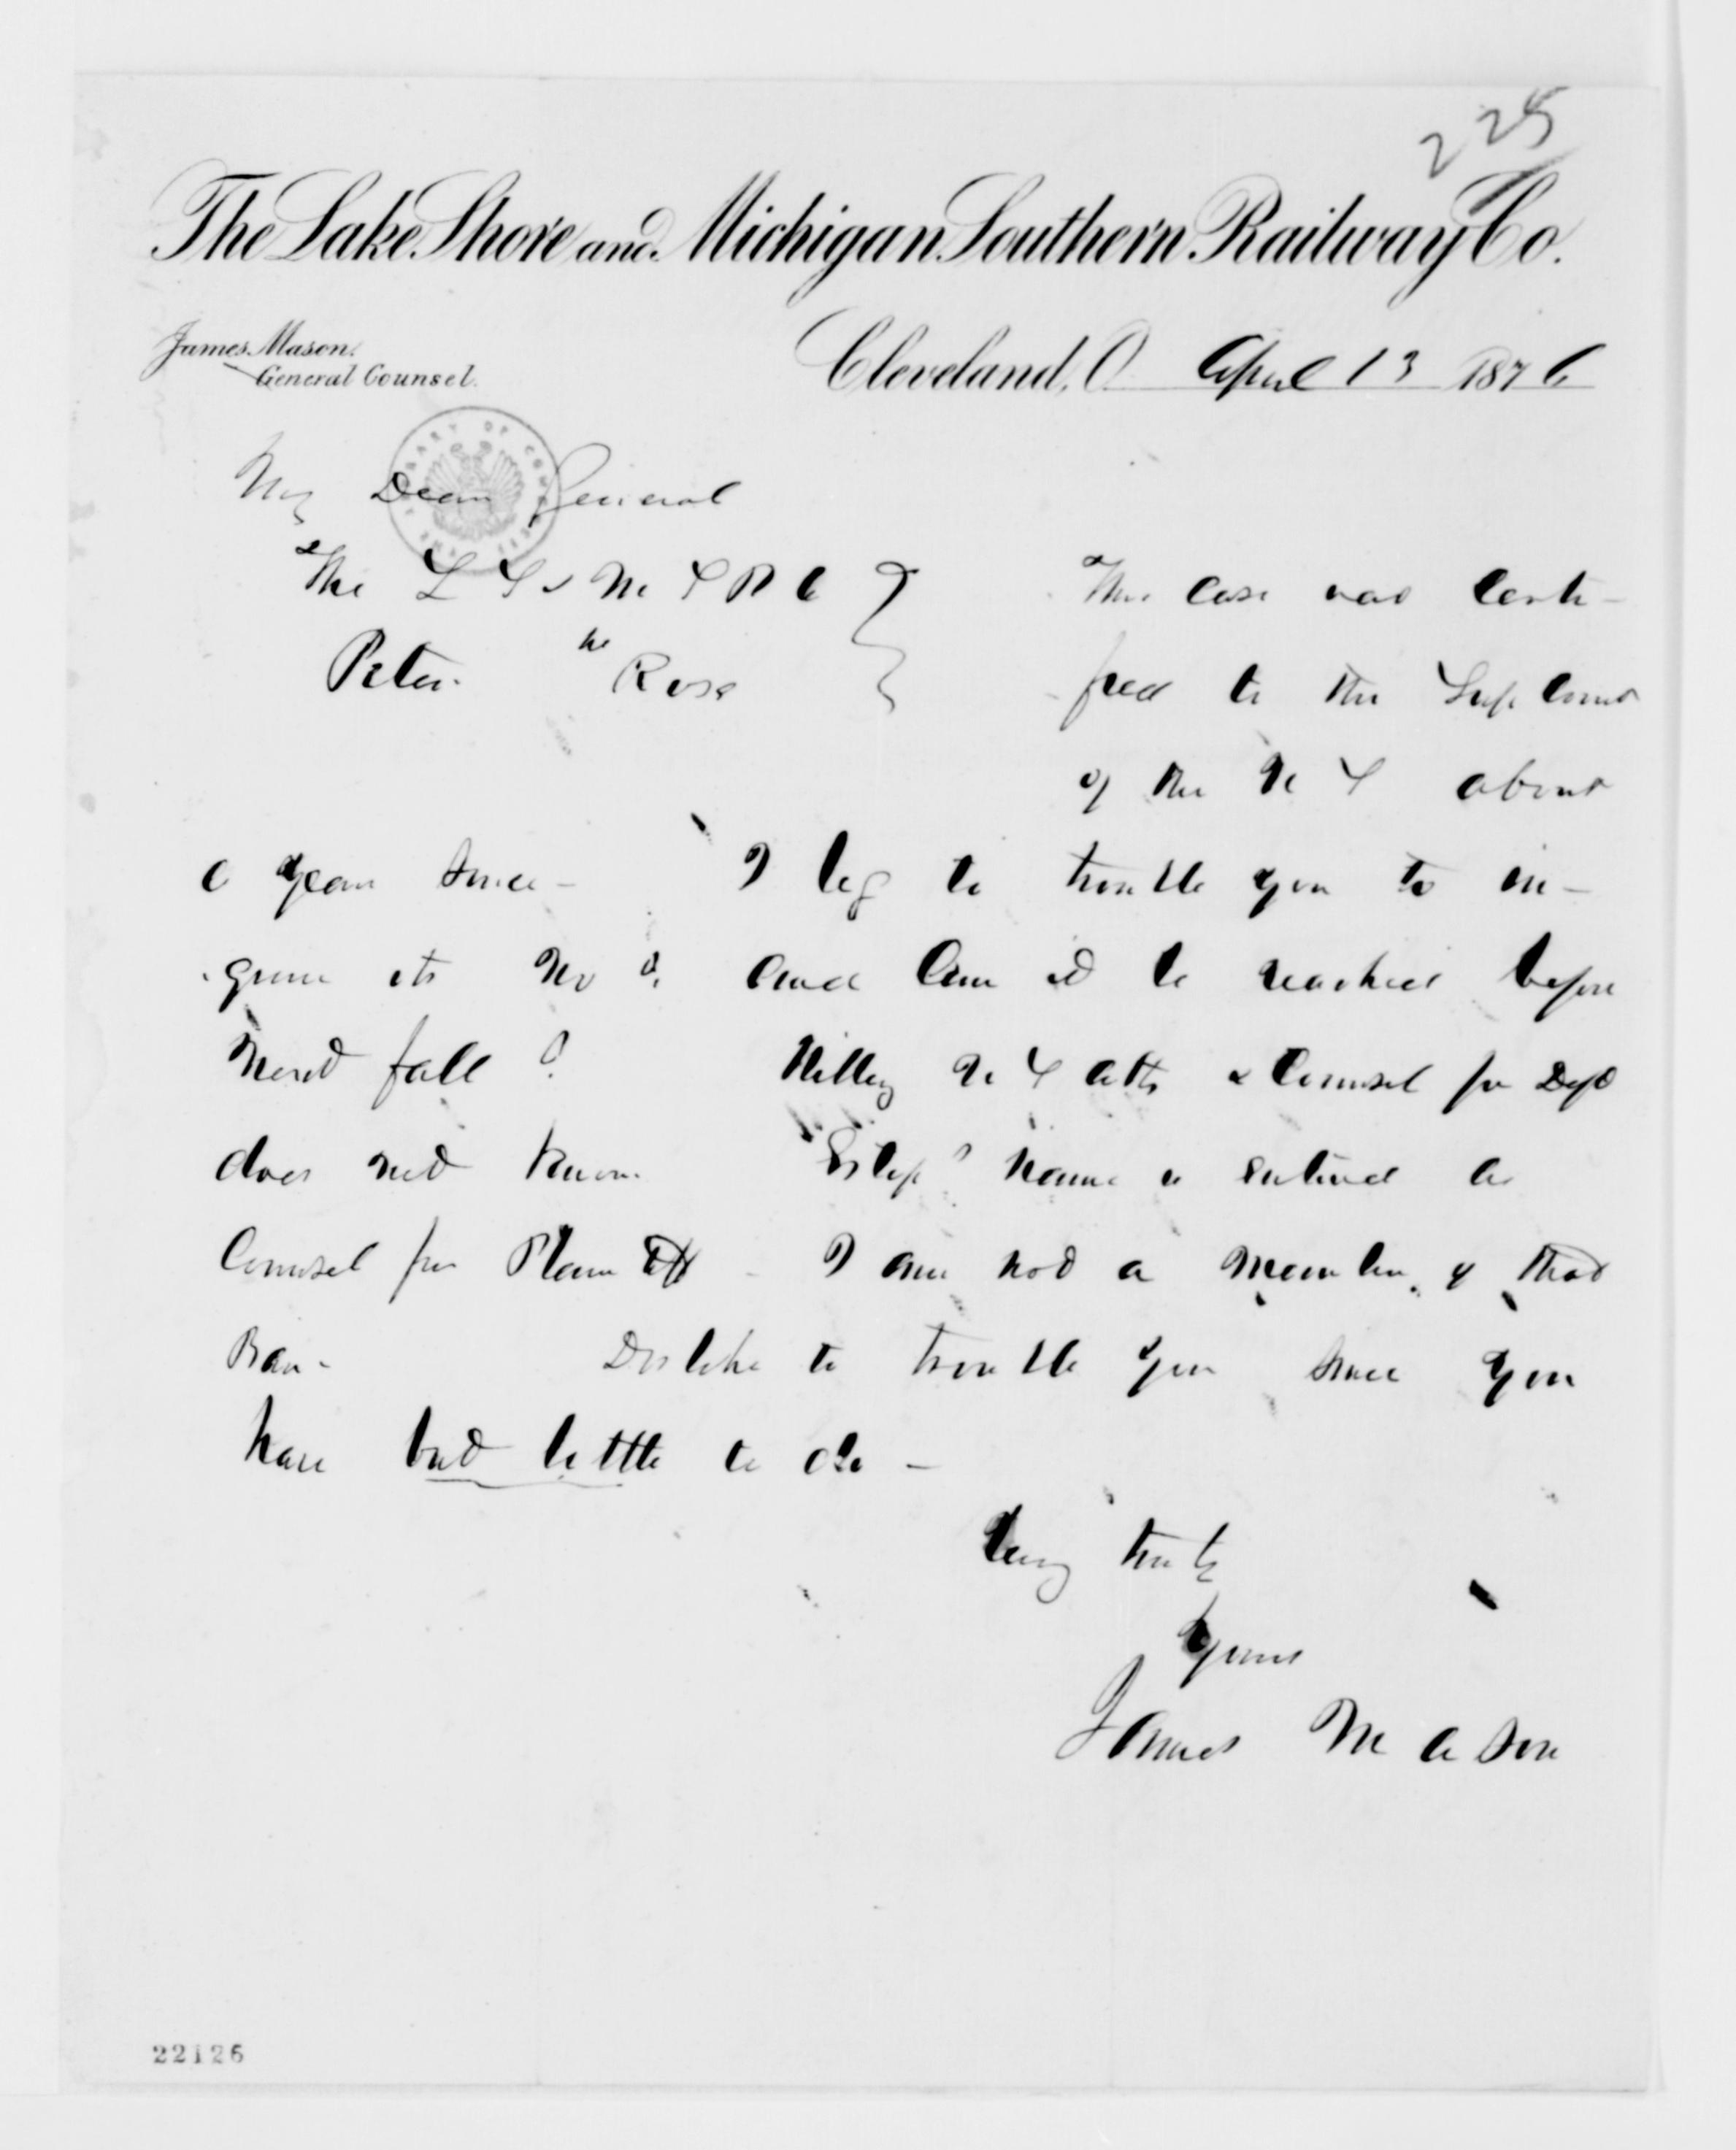 225
The Lake Shore and Michigan Southern Railway Co.
James Mason,
General Counsel.
Cleveland, O. April 13 1876
My Dear General
The L S & M S R C } This Case was Certi-
Peter Rose
fied to the Sup Court
of the U S about
a year since - I beg to trouble you to in-
quire its No & and Can it be reached before
next fall? Willey U S atty & Counsel for Deft
does not know. Estep's name is entered as
Counsel for Plaintiff - I am not a member of that
Bar - Dislike to trouble you since you
have but little to do -
Very truly
Yours
James Mason
22126